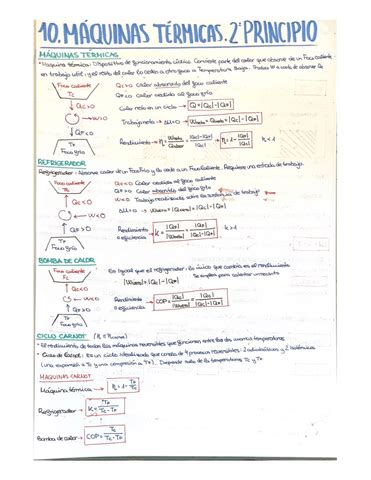 10. MÁQUINAS TÉRMICAS. 2º PRINCIPIO
MÁQUINAS TÉRMICAS
• Máquina térmica: Dispositivo de funcionamiento cíclico. Convierte parte del calor que absorbe de un Foco caliente
en trabajo útil, y el resto del calor lo cede a otro foco a Temperatura Baja. Produce W a costa de absorber Q
Foco caliente
Tc
Qc>0 Calor absorbido del foco caliente
Qc>0
QF<0 Calor cedido al foco frío
Calor neto en un ciclo → Q=|Qc|-|QF|
Trabajo neto → ΔU=0 → Wneto = Qneto = |Qc|-|QF|
QF<0
Foco frío
Rendimiento → η = = |Qc|-|QF| / |Qc| → η = 1 - |QF|/|Qc| η<1
REFRIGERADOR
Refrigerador: Absorve calor de un Foco Frío y lo cede a un Foco Caliente. Requiere una entrada de trabajo
Foco caliente
Tc
Qc<0 Calor cedido al foco caliente
Qc<0
QF>0 Calor absorbido del foco frío
W<0
W<0 Trabajo realizado sobre la sustancia de trabajo
ΔU=0 → Wneto = |Qneto| = |Qc|-|QF|
QF>0
TF
Foco frío
Rendimiento o eficiencia → K = |QF|/|Wneto| = |QF| / |Qc|-|QF| K>1
BOMBA DE CALOR
Foco caliente
Es igual que el refrigerador. Lo único que cambia es el rendimiento
Se emplea para calentar un recinto
Qc<0
|Wneto| = |Qc|-|QF|
W<0
Rendimiento o eficiencia → COP = |Qc|/|Wneto| = |Qc| / |Qc|-|QF|
QF>0
TF
Foco frío
CICLO CARNOT
• El rendimiento de todas las máquinas reversibles que funcionan entre las dos mismas temperaturas
• Ciclo de Carnot: Es un ciclo idealizado que consta de 4 procesos reversibles: 2 adiabáticos y 2 isotérmicos
(una expansión a Tc y una compresión a TF). Depende solo de la temperatura Tc y TF
MAQUINAS CARNOT
Máquina térmica → η = 1 - TF/Tc
Refrigerador → K = TF / Tc-TF
Bomba de calor → COP = Tc / Tc-TF